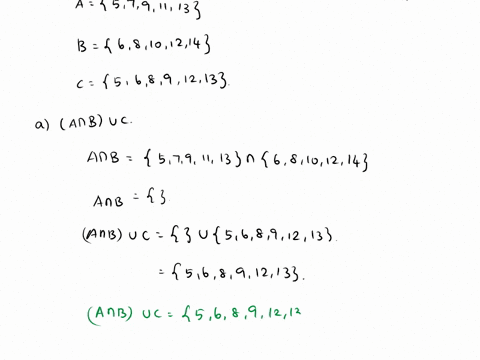 A = {5,7,9,11,13}
B = {6,8,10,12,14}
C = {5,6,8,9,12,13}.
a) (A∩B) ∪C.
A∩B = {5,7,9,11,13} ∩ {6,8,10,12,14}
A∩B = {}.
(A∩B) ∪C = {} ∪ {5,6,8,9,12,13}.
= {5,6,8,9,12,13}.
(A∩B) ∪C = {5,6,8,9,12,13